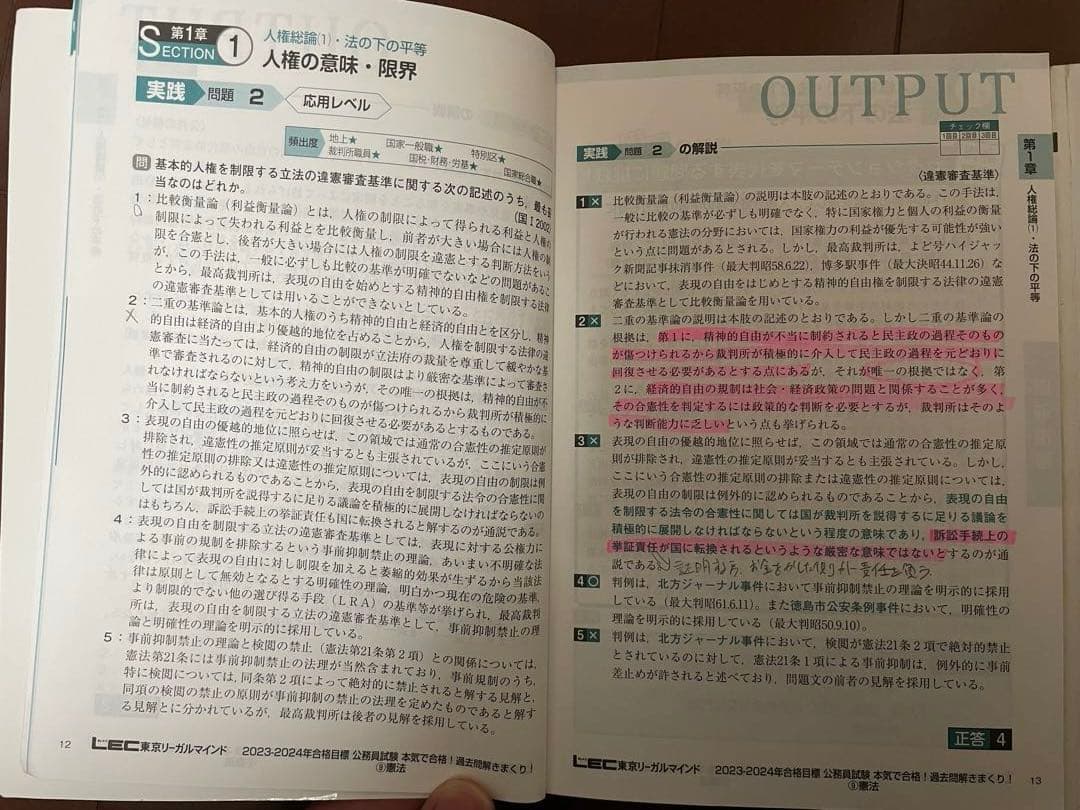 第1章
SECTION 1
人権総論(1)・法の下の平等
人権の意味・限界
実践 問題 2 応用レベル
頻出度
地上★ 国家一般職★ 特別区★
裁判所職員★ 国税・財務・労基★ 国家総合職★
問 基本的人権を制限する立法の違憲審査基準に関する次の記述のうち，最も妥
当なのはどれか。
(国Ⅰ2002)
1：比較衡量論（利益衡量論）とは，人権の制限によって得られる利益と人権の
制限によって失われる利益とを比較衡量し，前者が大きい場合には人権の制
限を合憲とし，後者が大きい場合には人権の制限を違憲とする判断方法をいう
が，この手法は，一般に必ずしも比較の基準が明確でないなどの問題があるこ
とから，最高裁判所は，表現の自由を始めとする精神的自由権を制限する法律
の違憲審査基準としては用いることができないとしている。
2：二重の基準論とは，基本的人権のうち精神的自由と経済的自由とを区分し，精神
的自由は経済的自由より優越的地位を占めることから，人権を制限する法律の違
憲審査に当たっては，経済的自由の制限が立法府の裁量を尊重して緩やかな基
準で審査されるのに対して，精神的自由の制限はより厳密な基準によって審査さ
れなければならないという考え方をいうが，その唯一の根拠は，精神的自由が不
当に制約されると民主政の過程そのものが傷つけられるから裁判所が積極的に
介入して民主政の過程を元どおりに回復させる必要があるとするものである。
3：表現の自由の優越的地位に照らせば，この領域では通常の合憲性の推定原則が
排除され，違憲性の推定原則が妥当するとも主張されているが，ここにいう合憲
性の推定原則の排除又は違憲性の推定原則については，表現の自由の制限は例
外的に認められるものであることから，表現の自由を制限する法令の合憲性に関
しては国が裁判所を説得するに足りる議論を積極的に展開しなければならないの
はもちろん，訴訟手続上の挙証責任も国に転換されると解するのが通説である。
4：表現の自由を制限する立法の違憲審査基準としては，表現に対する公権力に
よる事前の規制を排除するという事前抑制禁止の理論，あいまい不明確な法
律によって表現の自由に対し制限を加えると萎縮的効果が生ずるから当該法
律は原則として無効となるとする明確性の理論，明白かつ現在の危険の基準，
より制限的でない他の選び得る手段（LRA）の基準等が挙げられ，最高裁判
所は，表現の自由を制限する立法の違憲審査基準として，事前抑制禁止の理
論と明確性の理論を明示的に採用している。
5：事前抑制禁止の理論と検閲の禁止（憲法第21条第2項）との関係については，
憲法第21条には事前抑制禁止の法理が当然含まれており，事前規制のうち，
特に検閲については，同条第2項によって絶対的に禁止されると解する見解と，
同項の検閲の禁止の原則が事前抑制の禁止の法理を定めたものであると解す
る見解とに分かれているが，最高裁判所は後者の見解を採用している。
12 LEC東京リーガルマインド 2023-2024年合格目標 公務員試験 本気で合格！過去問解きまくり！
⑨憲法
OUTPUT
チェック欄
1回目 2回目 3回目
実践 問題 2 の解説
〈違憲審査基準〉
1 × 比較衡量論（利益衡量論）の説明は本肢の記述のとおりである。この手法は，
一般に比較の基準が必ずしも明確でなく，特に国家権力と個人の利益の衡量
が行われる憲法の分野においては，国家権力の利益が優先する可能性が強い
という点に問題があるとされる。しかし，最高裁判所は，よど号ハイジャッ
ク新聞記事抹消事件（最大判昭58.6.22），博多駅事件（最大決昭44.11.26）な
どにおいて，表現の自由をはじめとする精神的自由権を制限する法律の違憲
審査基準として比較衡量論を用いている。
2 × 二重の基準論の説明は本肢の記述のとおりである。しかし二重の基準論の
根拠は，第1に，精神的自由が不当に制約されると民主政の過程そのもの
が傷つけられるから裁判所が積極的に介入して民主政の過程を元どおりに
回復させる必要があるとする点にあるが，それが唯一の根拠ではなく，第
2に，経済的自由の規制は社会・経済政策の問題と関係することが多く，
その合憲性を判定するには政策的な判断を必要とするが，裁判所はそのよ
うな判断能力に乏しいという点も挙げられる。
3 × 表現の自由の優越的地位に照らせば，この領域では通常の合憲性の推定原
則が排除され，違憲性の推定原則が妥当するとも主張されている。しかし，
ここにいう合憲性の推定原則の排除または違憲性の推定原則については，
表現の自由の制限は例外的に認められるものであることから，表現の自由
を制限する法令の合憲性に関しては国が裁判所を説得するに足りる議論を
積極的に展開しなければならないという程度の意味であり，訴訟手続上の
挙証責任が国に転換されるというような厳密な意味ではないとするのが通
説である。
4 ○ 判例は，北方ジャーナル事件において事前抑制禁止の理論を明示的に採用
している（最大判昭61.6.11）。また徳島市公安条例事件において，明確性の
理論を明示的に採用している（最大判昭50.9.10）。
5 × 判例は，北方ジャーナル事件において，検閲が憲法21条2項で絶対的に禁止
とされているのに対して，憲法21条1項による事前抑制は，例外的に事前
差止めが許されると述べており，問題文の前者の見解を採用している。
正答 4
第1章
人権総論(1)・法の下の平等
LEC東京リーガルマインド 2023-2024年合格目標 公務員試験 本気で合格！過去問解きまくり！ 13
⑨憲法